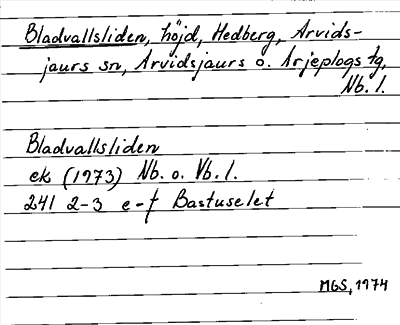 Bladvallsliden, höjd, Hedberg, Arvids-
jaurs sn, Arvidsjaurs o. Arjeplogs tg,
Nb. l.
Bladvallsliden
ek (1973) Nb. o. Vb. l.
241 2-3 e-f Bastuselet
MGS, 1974